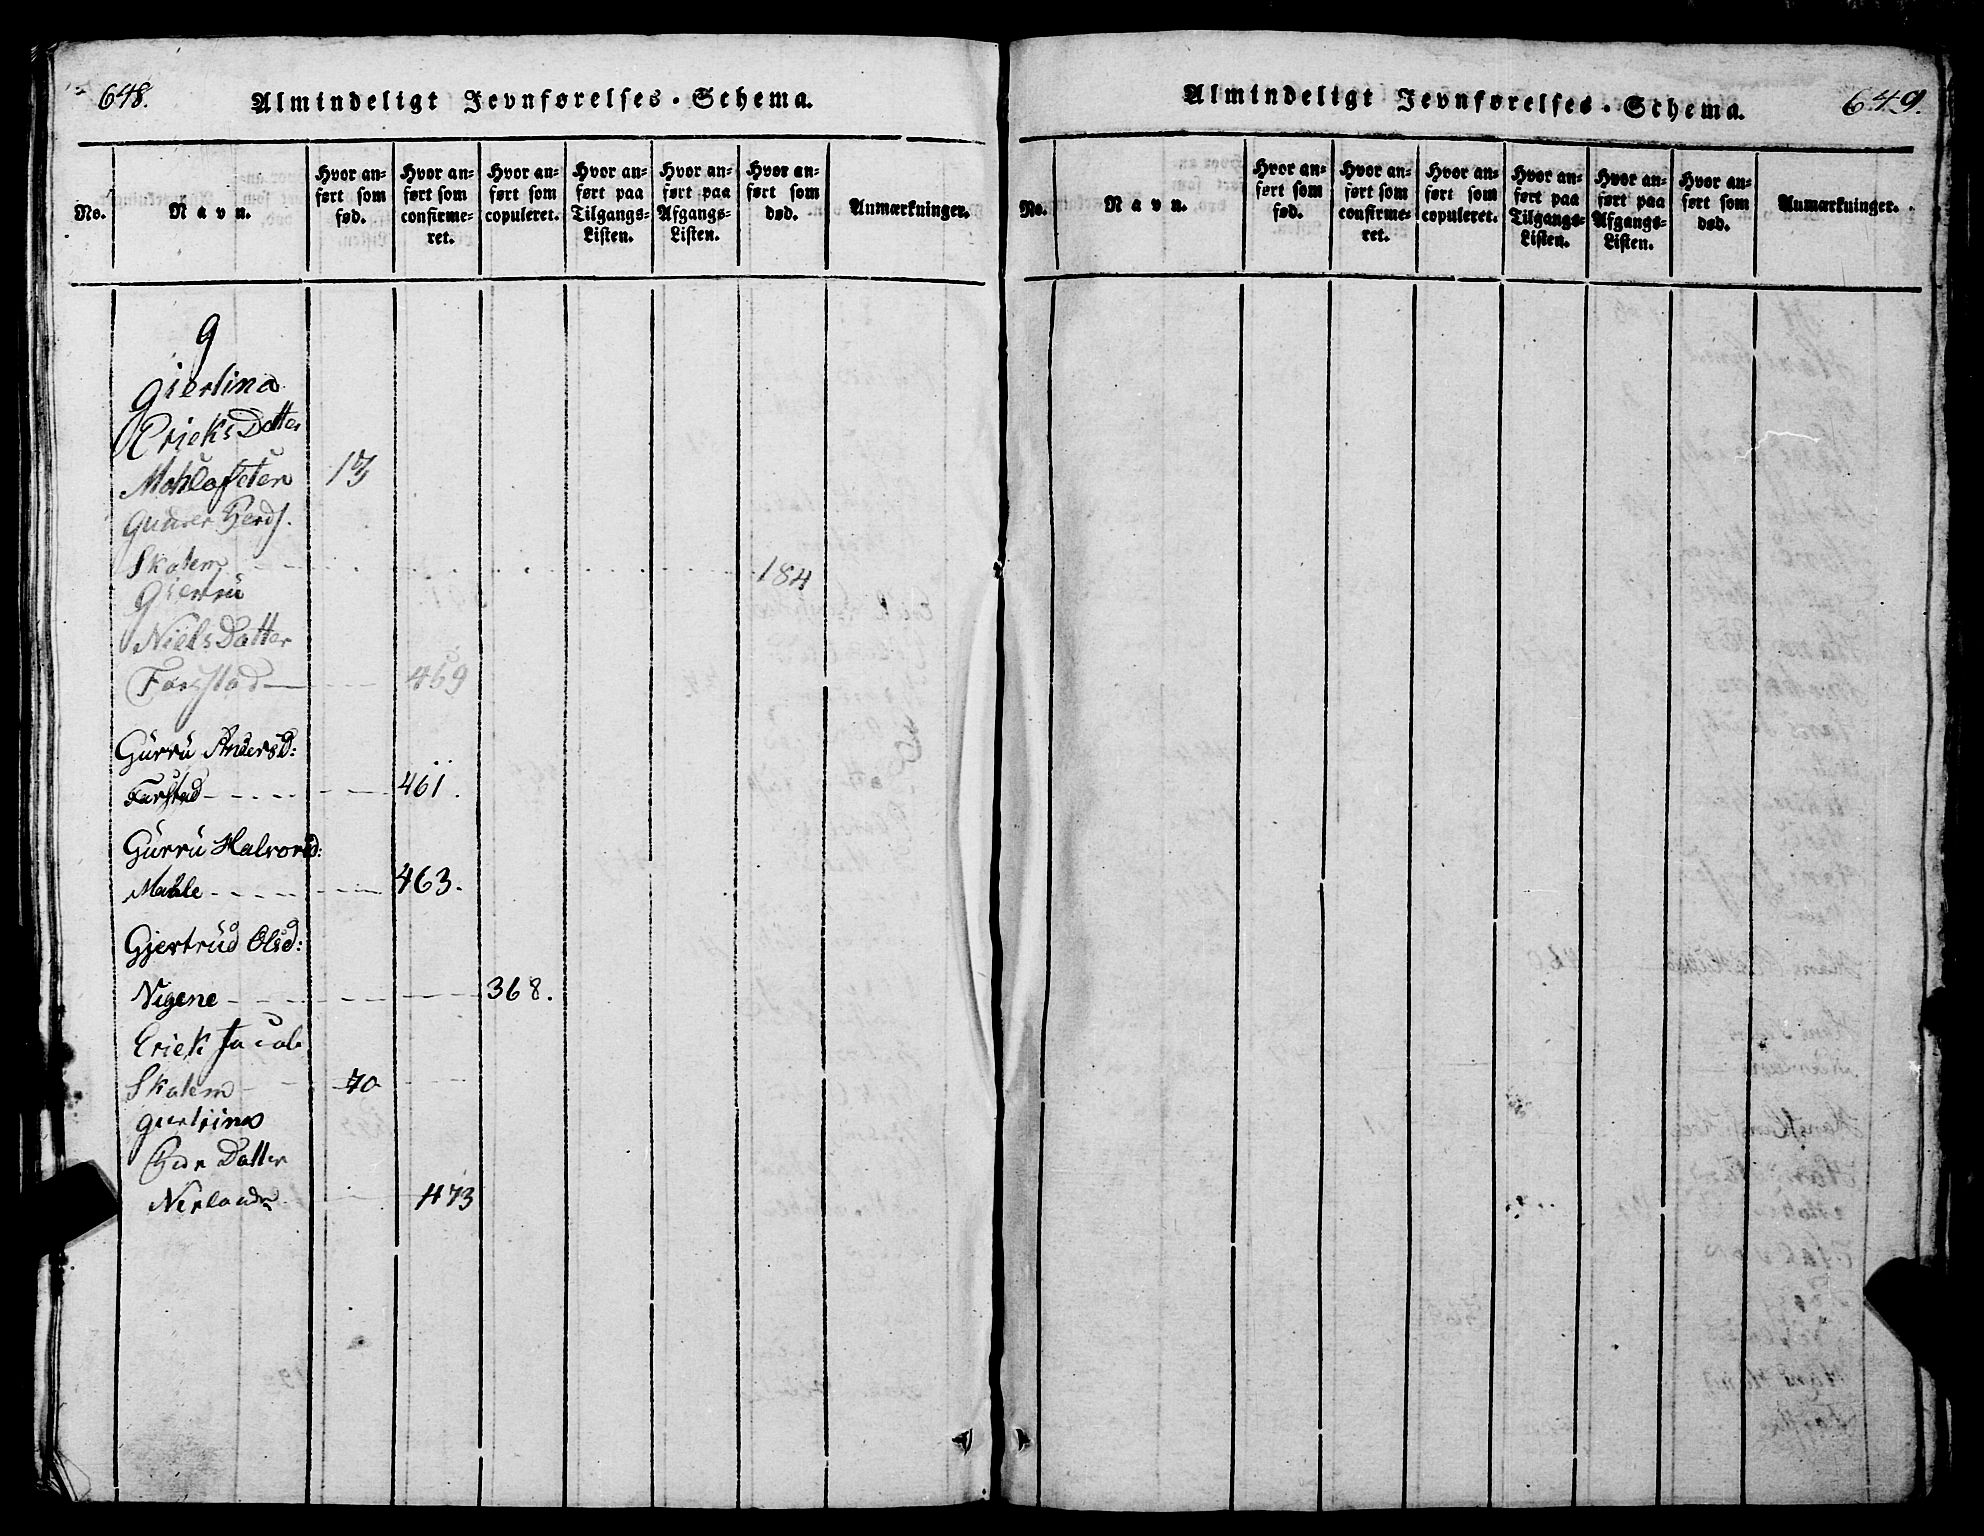 648.
Almindeligt Jevnførelses-Schema.
No.
Navn.
Hvor an-
ført som
fød.
Hvor an-
ført som
confirme-
ret.
Hvor an-
ført som
copuleret.
Hvor an-
ført paa
Tilgangs-
Listen.
Hvor an-
ført paa
Afgangs-
Listen.
Hvor an-
ført som
død.
Anmærkninger.
G
Gierlina
EricksDatter
17
Gunner
Skalem 184
Gierrü
NielsDatter
Farstad 469
Gürrü Andersd:
Farstad 461.
Gürrü Halvorsd:
Mahle 463.
Gjertrüd Olsd:
Nigene 368.
Erick Jacob
Skalem 70
Datter
Nerland 473
Almindeligt Jevnførelses-Schema.
649.
No.
Navn.
Hvor an-
ført som
fød.
Hvor an-
ført som
confirme-
ret.
Hvor an-
ført som
copuleret.
Hvor an-
ført paa
Tilgangs-
Listen.
Hvor an-
ført paa
Afgangs-
Listen.
Hvor an-
ført som
død.
Anmærkninger.